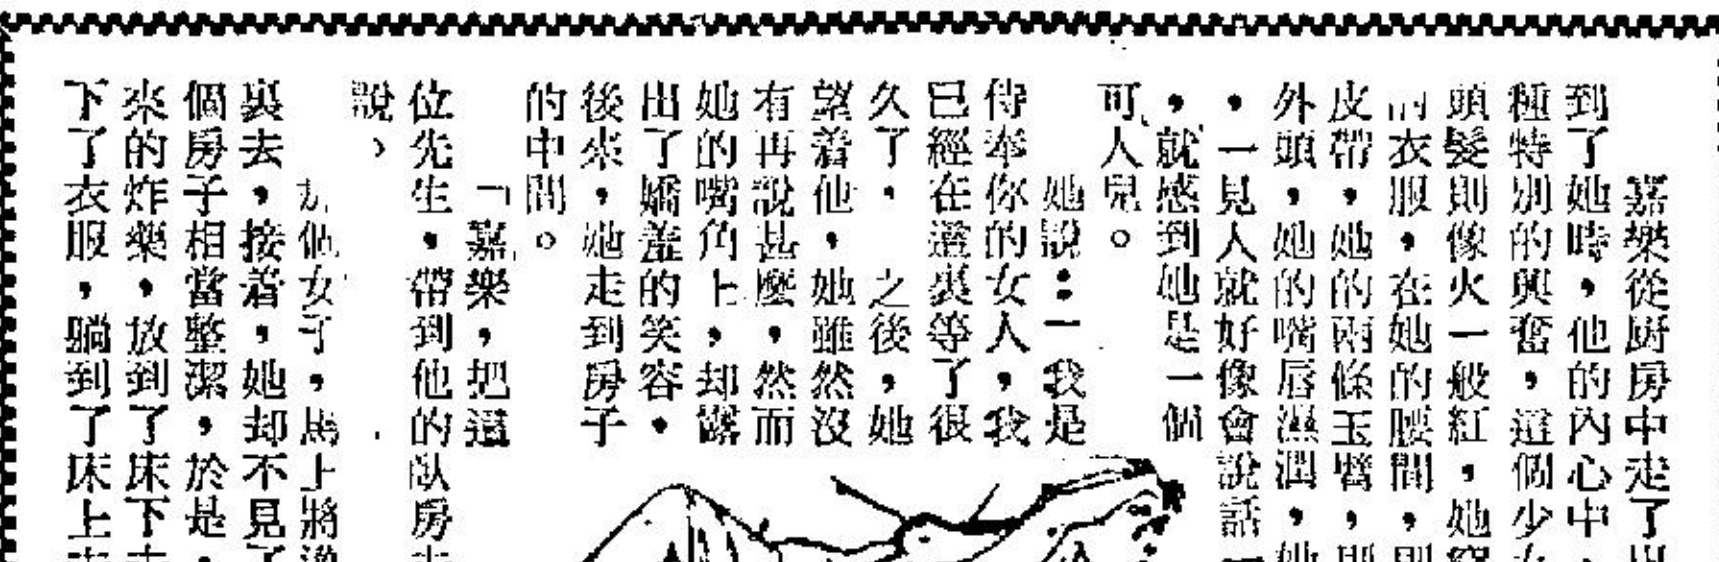 嘉樂從厨房中走了出
到了她時，他的內心中，
種特別的興奮，這個少女
頭髮則像火一般紅，她穿
的衣服，在她的腰間，則
皮帶，她的兩條玉臂，則
外頭，她的嘴唇濕潤，她
，一見人就好像會說話一
，就感到她是一個
可人兒。
她說：一我是
侍奉你的女人，我
已經在這裏等了很
久了，之後，她
望着他，她雖然沒
有再說甚麼，然而
她的嘴角上，却露
出了嬌羞的笑容，
後來，她走到房子
的中間。
「嘉樂，把這
位先生，帶到他的臥房去
說、
那個女子，馬上將
裏去，接着，她却不見了
個房子相當整潔，於是，
來的炸藥，放到了床下去
下了衣服，躺到了床上去